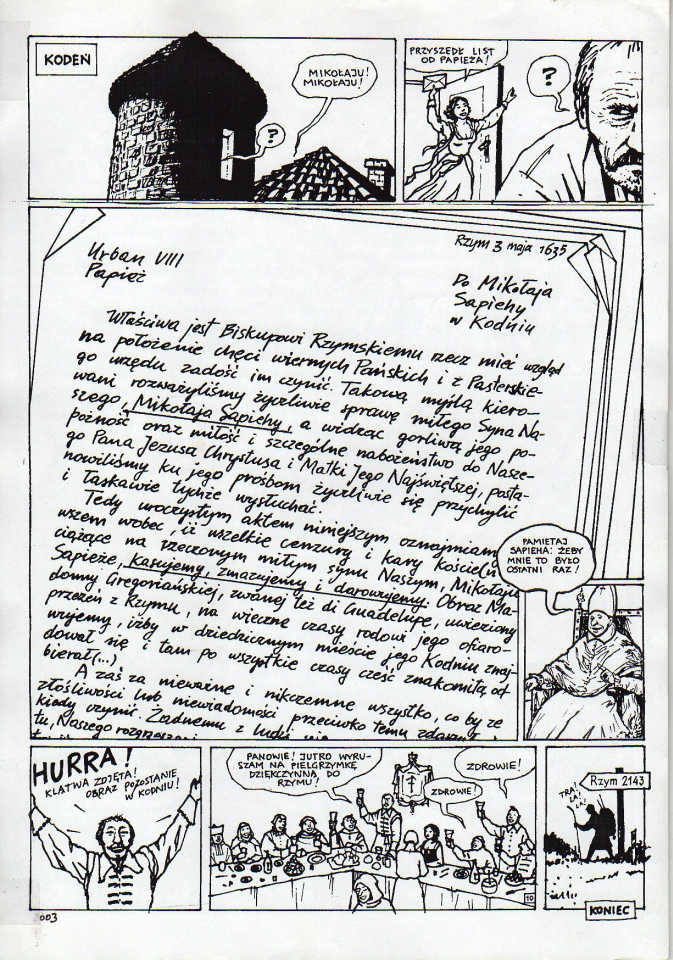 KODEŃ
MIKOŁAJU!
MIKOŁAJU!
?
PRZYSZEDŁ LIST
OD PAPIEŻA!
?
Urban VIII
Papież
Rzym 3 maja 1635
Do Mikołaja
Sapiehy
w Kodniu
Właściwa jest Biskupowi Rzymskiemu rzecz mieć wzgląd
na położenie chęci wiernych Pańskich i z Pasterskie-
go urzędu zadość im czynić. Takową myślą kiero-
wani rozważyliśmy życzliwie sprawę miłego Syna Na-
szego, Mikołaja Sapiehy, a widząc gorliwą jego po-
bożność oraz miłość i szczególne nabożeństwo do Nasze-
go Pana Jezusa Chrystusa i Matki Jego Najświętszej, posta-
nowiliśmy ku jego prośbom życzliwie się przychylić
i łaskawie tychże wysłuchać.
Tedy uroczystym aktem niniejszym oznajmiamy
wszem wobec, iż wszelkie cenzury i kary kościeln
ciążące na rzeczonym miłym synu Naszym, Mikołaju
Sapieże, kasujemy, zmazujemy i darowujemy. Obraz Ma-
donny Gregoriańskiej, zwanej też di Guadelupe, uwieziony
przezeń z Rzymu, na wieczne czasy rodowi jego ofiaro-
wujemy, iżby w dziedzicznym mieście jego Kodniu znaj-
dował się i tam po wszystkie czasy cześć znakomitą od-
bierał (...)
A zaś za nieważne i nikczemne wszystko, co by ze
złośliwości lub niewiadomości przeciwko temu zdarzyło
kiedy uczynić. Żadnemu z ludzi
tu, Naszego rozgrzeszenia
PAMIĘTAJ
SAPIEHA: ŻEBY
MNIE TO BYŁO
OSTATNI RAZ!
HURRA!
KLĄTWA ZDJĘTA!
OBRAZ POZOSTANIE
W KODNIU!
PANOWIE! JUTRO WYRU-
SZAM NA PIELGRZYMKĘ
DZIĘKCZYNNĄ DO
RZYMU!
ZDROWIE!
ZDROWIE!
10
TRA!
LA!
LA!
Rzym 2143
KONIEC
003